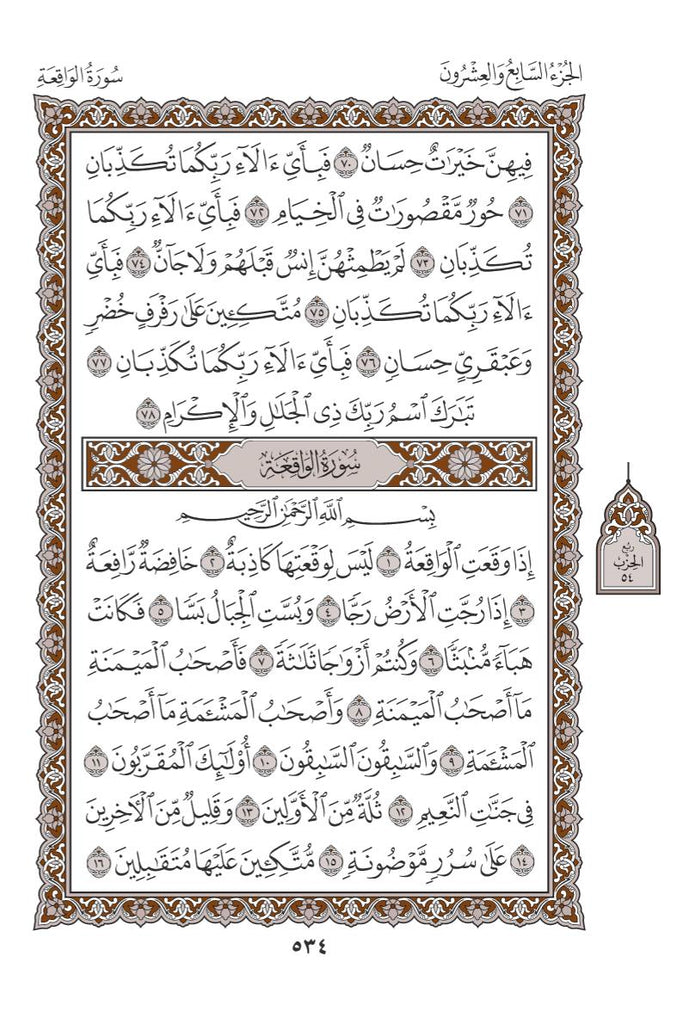 الجُزْءُ السَّابِعُ وَالعِشْرُونَ
سُورَةُ الوَاقِعَةِ
فِيهِنَّ خَيْرَٰتٌ حِسَانٌ ٧٠ فَبِأَيِّ ءَالَآءِ رَبِّكُمَا تُكَذِّبَانِ
٧١ حُورٌ مَّقْصُورَٰتٌ فِي ٱلْخِيَامِ ٧٢ فَبِأَيِّ ءَالَآءِ رَبِّكُمَا
تُكَذِّبَانِ ٧٣ لَمْ يَطْمِثْهُنَّ إِنسٌ قَبْلَهُمْ وَلَا جَآنٌّ ٧٤ فَبِأَيِّ
ءَالَآءِ رَبِّكُمَا تُكَذِّبَانِ ٧٥ مُتَّكِـِٔينَ عَلَىٰ رَفْرَفٍ خُضْرٍ
وَعَبْقَرِيٍّ حِسَانٍ ٧٦ فَبِأَيِّ ءَالَآءِ رَبِّكُمَا تُكَذِّبَانِ ٧٧
تَبَٰرَكَ ٱسْمُ رَبِّكَ ذِي ٱلْجَلَٰلِ وَٱلْإِكْرَامِ ٧٨
سُورَةُ الوَاقِعَةِ
بِسْمِ ٱللَّهِ ٱلرَّحْمَٰنِ ٱلرَّحِيمِ
إِذَا وَقَعَتِ ٱلْوَاقِعَةُ ١ لَيْسَ لِوَقْعَتِهَا كَاذِبَةٌ ٢ خَافِضَةٌ رَّافِعَةٌ
٣ إِذَا رُجَّتِ ٱلْأَرْضُ رَجًّا ٤ وَبُسَّتِ ٱلْجِبَالُ بَسًّا ٥ فَكَانَتْ
هَبَآءً مُّنۢبَثًّا ٦ وَكُنتُمْ أَزْوَٰجًا ثَلَٰثَةً ٧ فَأَصْحَٰبُ ٱلْمَيْمَنَةِ
مَآ أَصْحَٰبُ ٱلْمَيْمَنَةِ ٨ وَأَصْحَٰبُ ٱلْمَشْـَٔمَةِ مَآ أَصْحَٰبُ
ٱلْمَشْـَٔمَةِ ٩ وَٱلسَّٰبِقُونَ ٱلسَّٰبِقُونَ ١٠ أُوْلَٰٓئِكَ ٱلْمُقَرَّبُونَ ١١
فِي جَنَّٰتِ ٱلنَّعِيمِ ١٢ ثُلَّةٌ مِّنَ ٱلْأَوَّلِينَ ١٣ وَقَلِيلٌ مِّنَ ٱلْأٓخِرِينَ
١٤ عَلَىٰ سُرُرٍ مَّوْضُونَةٍ ١٥ مُّتَّكِـِٔينَ عَلَيْهَا مُتَقَٰبِلِينَ ١٦
رُبْع
الحِزْب
٥٤
٥٣٤